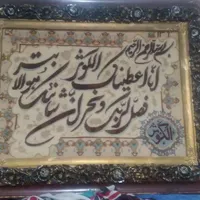 بسم الله الرحمن الرحیم
انا اعطیناک الکوثر
فصل لربک وانحر ان شانئک هو الابتر
الکوثر